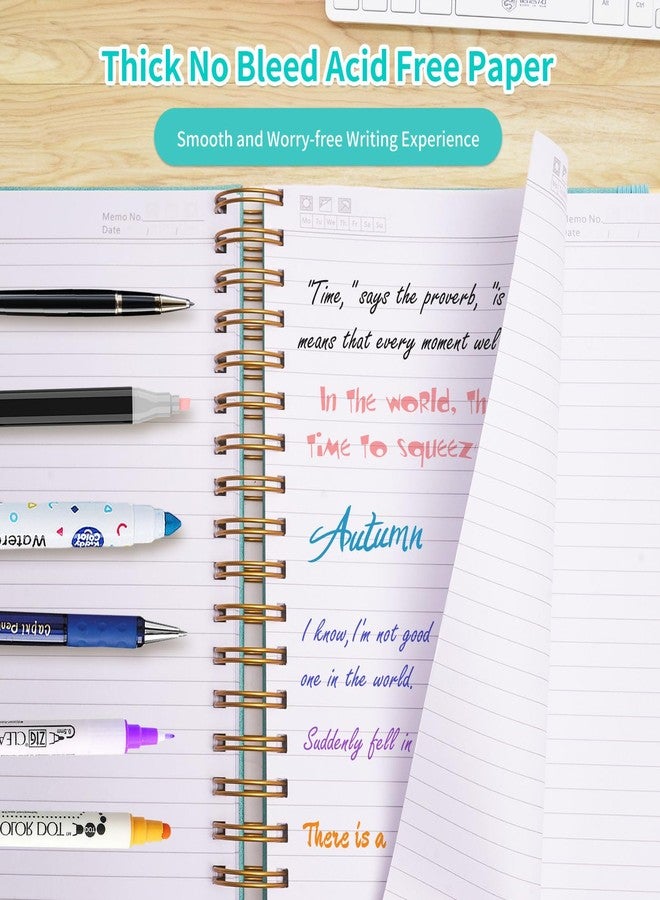 Alt
Ctrl
Thick No Bleed Acid Free Paper
Smooth and Worry-free Writing Experience
Memo No.
Date / /
Mo Tu We Th Fr Sa Su
Memo No.
Date / /
"Time," says the proverb, "is
means that every moment wel
In the world, th
Time to squeez
Autumn
I know,I'm not good
one in the world.
Suddenly fell in
There is a
Water
Kiddy Color
Capki Pen
ZIG CLEA
0.5mm
COLOR DOT
TOO